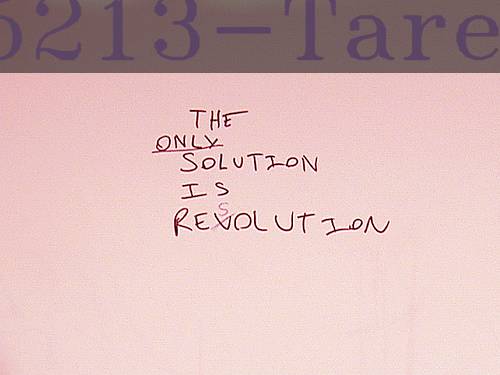 5213-Tare
THE
ONLY
SOLUTION
IS
S
REVOLUTION